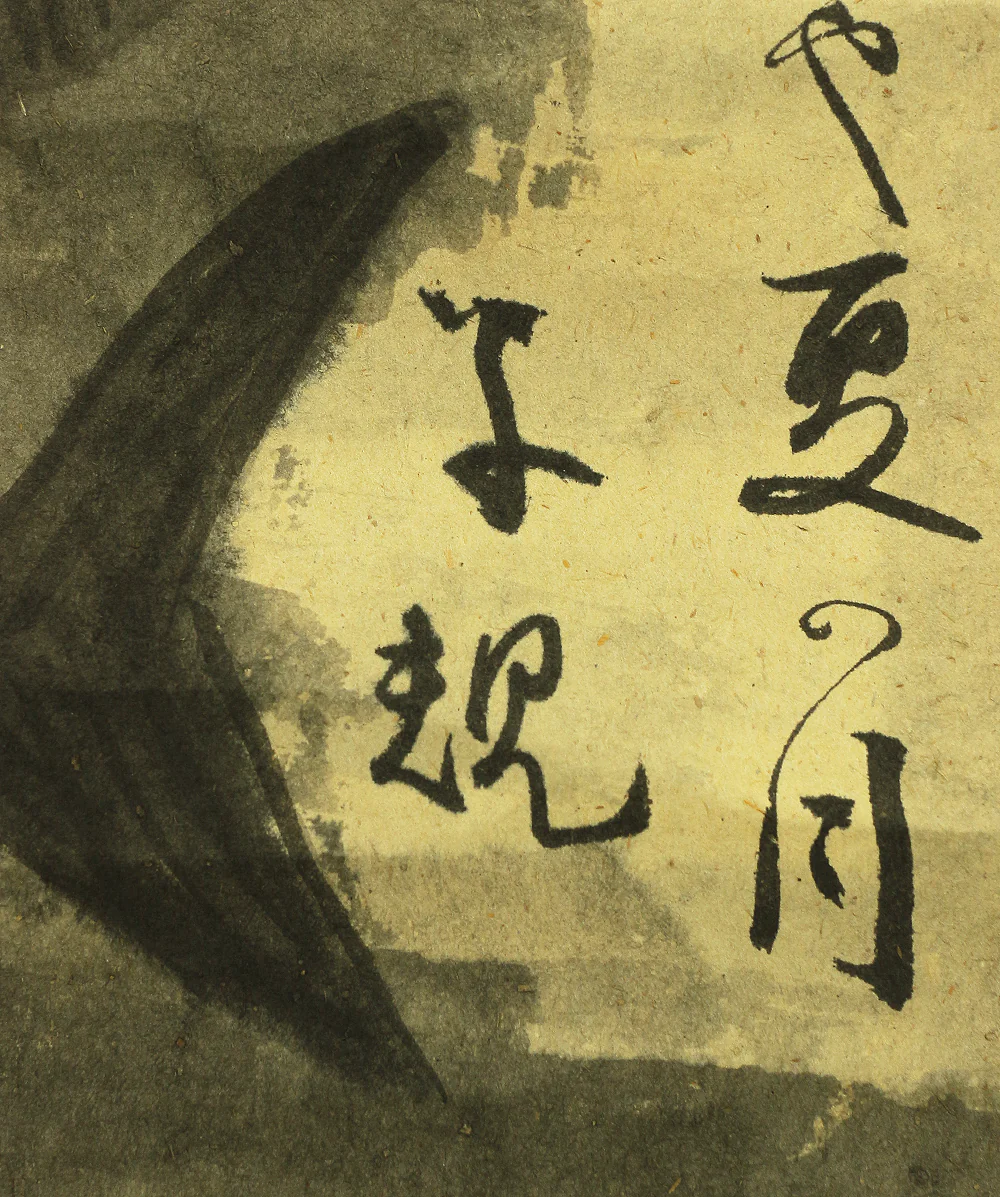 や夏の月
子規